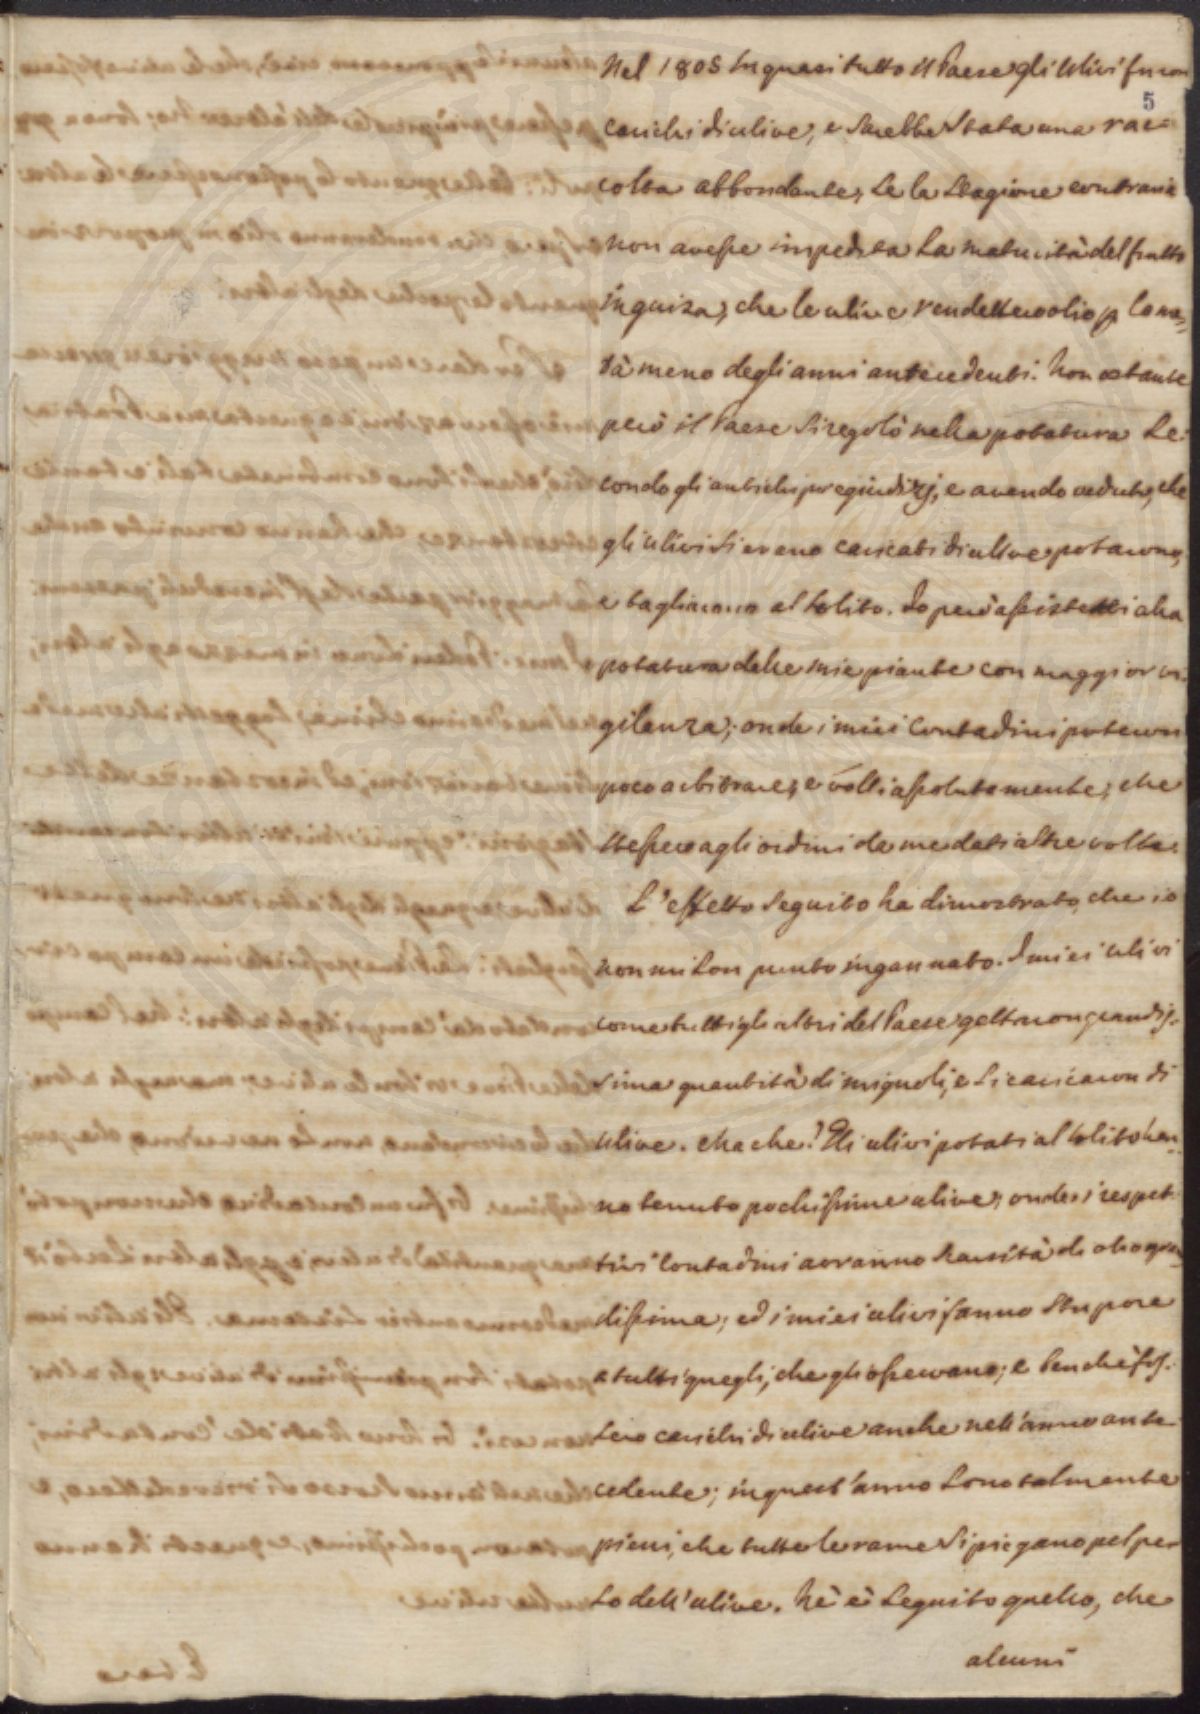 Nel 1805 in quasi tutto il Paese gli Ulivi furon
5
carichi di ulive, e sarebbe stata una rac=
colta abbondante, se la Stagione contraria
non avesse impedita la maturità del frutto
in guiza, che le ulive rendettero olio p la me=
tà meno degli anni antecedenti. Non ostante
però il Paese si regolò nella potatura se=
condo gli antichi pregiudizj, e avendo veduto, che
gli ulivi si erano caricati di ulive potarono,
e tagliarono al solito. Io però assistetti alla
potatura delle mie piante con maggior vi=
gilanza; onde i miei Contadini poteron
poco arbitrare, e volli assolutamente, che
stessero agli ordini da me dati altre volte.
L'effetto seguito ha dimostrato, che io
non mi son punto ingannato. I miei ulivi
come tutti gli altri del Paese gettaron grandis=
sima quantità di mignoli, e si caricaron di
ulive. Ma che? Gli ulivi potati al solito han=
no tenuto pochissime ulive, onde i respet=
tivi Contadini avranno scarsità di olio gran=
dissima; ed i miei ulivi fanno stupore
a tutti quegli, che gli osservano; e benchè fos=
sero carichi di ulive anche nell'anno ante=
cedente; in quest'anno sono talmente
pieni, che tutte le rame si piegano pel pe=
so dell'ulive. Nè è seguito quello, che
alcuni